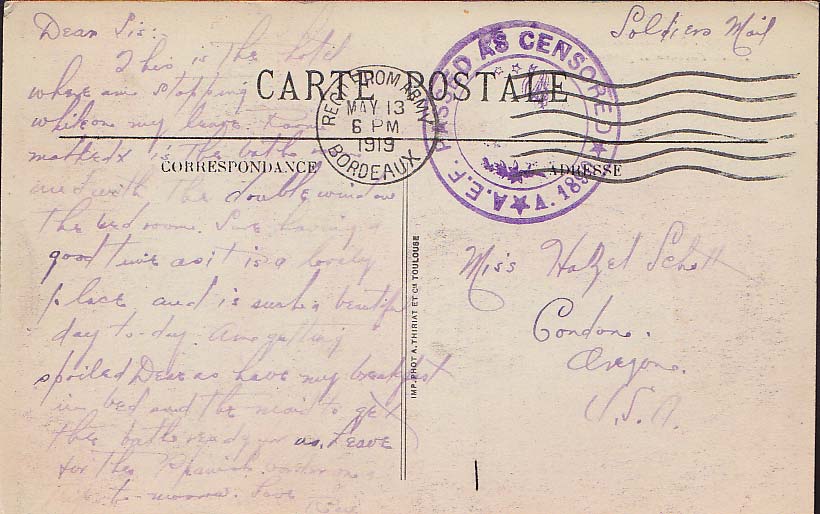 Dear Sis:-
This is the hotel
where am stopping
while on my leave. Room
marked x is the bath
and with the double window
the bed room. Am having a
good time as it is a lovely
place and is such a beautiful
day to-day. Am getting
spoiled Dear as have my breakfast
in bed and the maid to get
the bath ready
Leave
for the Spanish border
to-morrow. Love
Soldiers Mail
CARTE POSTALE
CORRESPONDANCE
ADRESSE
REC'D FROM ARMY
MAY 13
6 PM
1919
BORDEAUX
PASSED AS CENSORED
A.E.F.
IMP. PHOT A. THIRIAT ET Cie TOULOUSE
Miss Hazel Schott
Condon.
Oregon.
U.S.A.